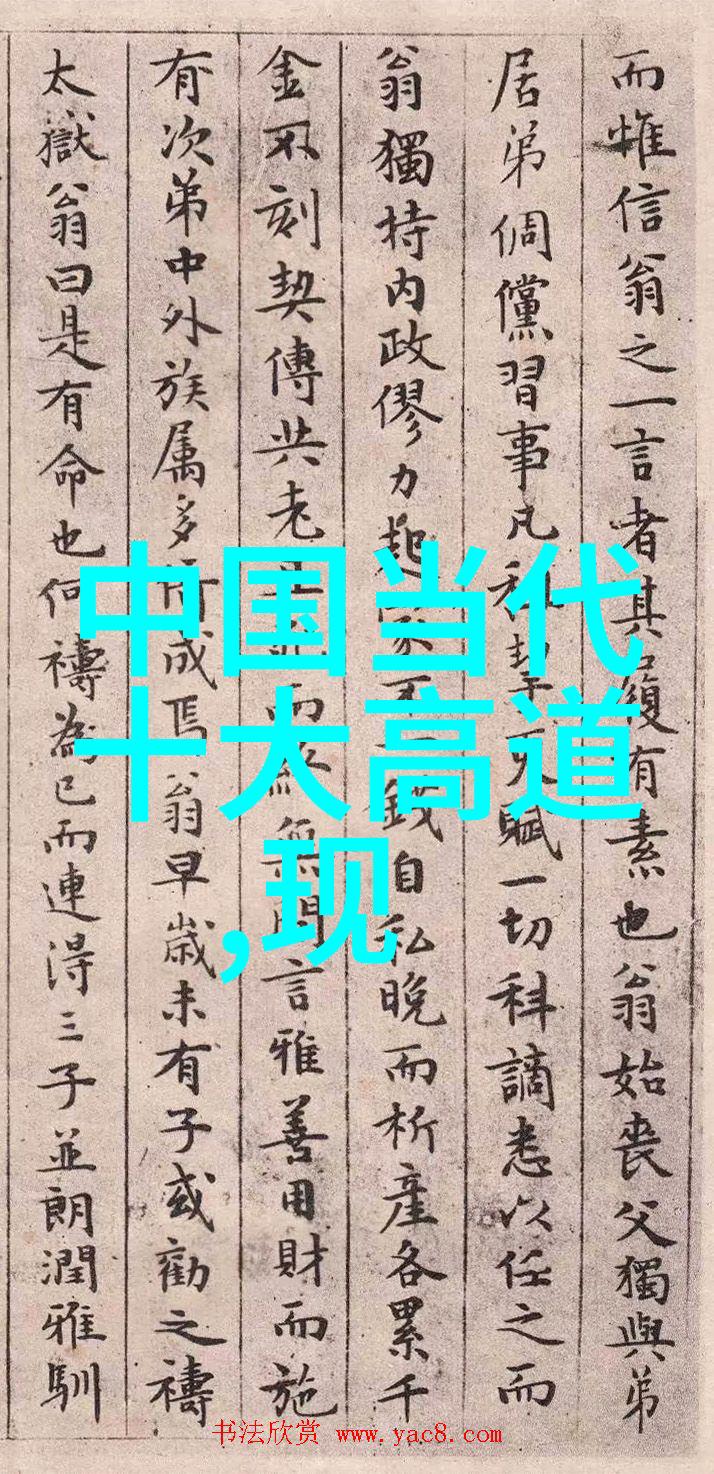 而惟信翁之一言者其履有素也翁始丧父獨與弟
居弟倜儻習事凡科一切科謫悉以任之而
翁獨持内政僇力起家不錢自私晚而析產各累千
金不刻契傳共老而無間言雅善用財而施
有次弟中外族属多所成焉翁早歲未有子或勸之禱
太嶽翁曰是有命也何禱為已而連得三子並朗潤雅馴
中国当代
十大高道
,现
书法欣赏 www.yac8.com